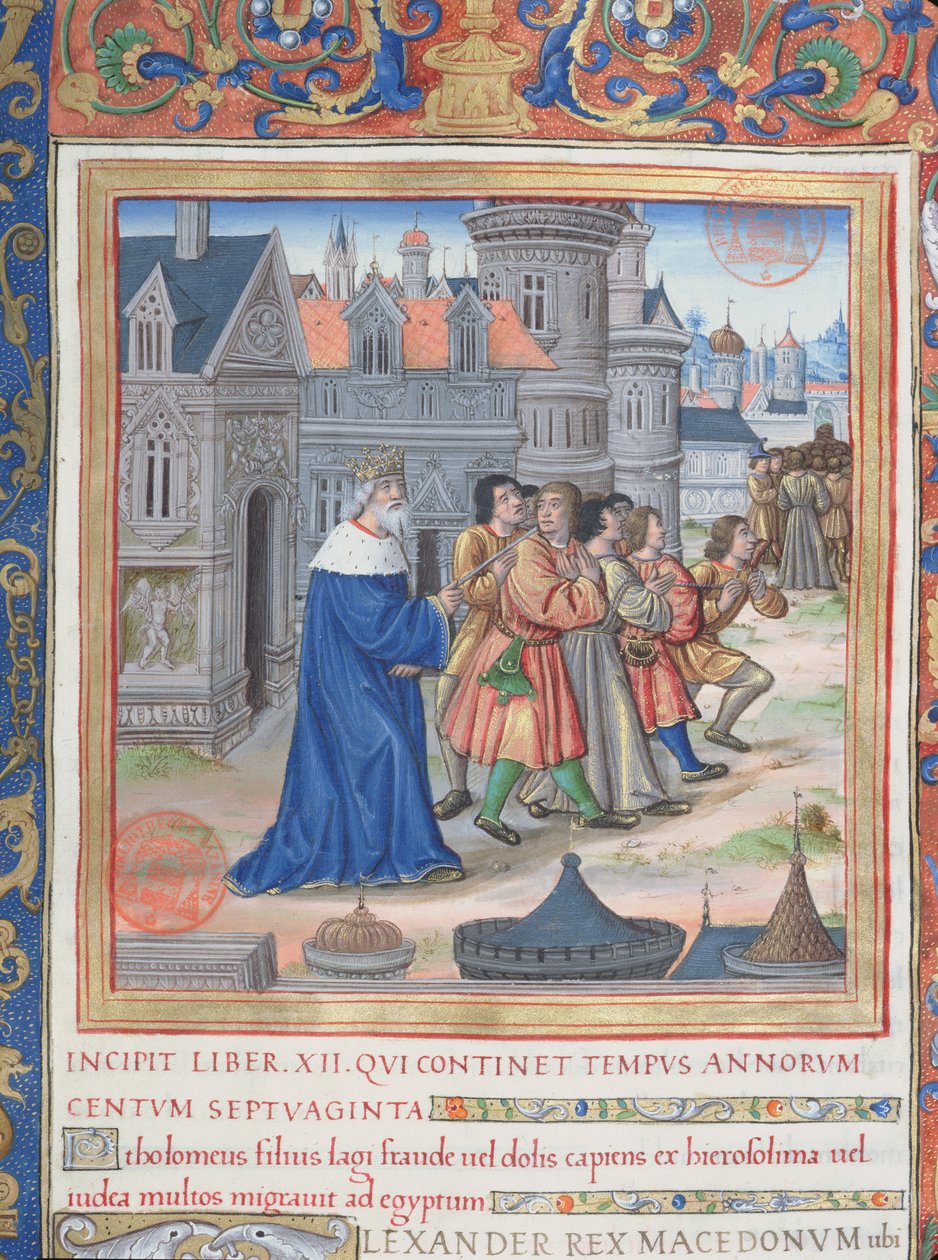 INCIPIT LIBER.XII.QVI CONTINET TEMPVS ANNORVM
CENTVM SEPTVAGINTA
Ptholomeus filius lagi fraude uel dolis capiens ex hierosolima uel
iudea multos migrauit ad egyptum
LEXANDER REX MACEDONVM ubi